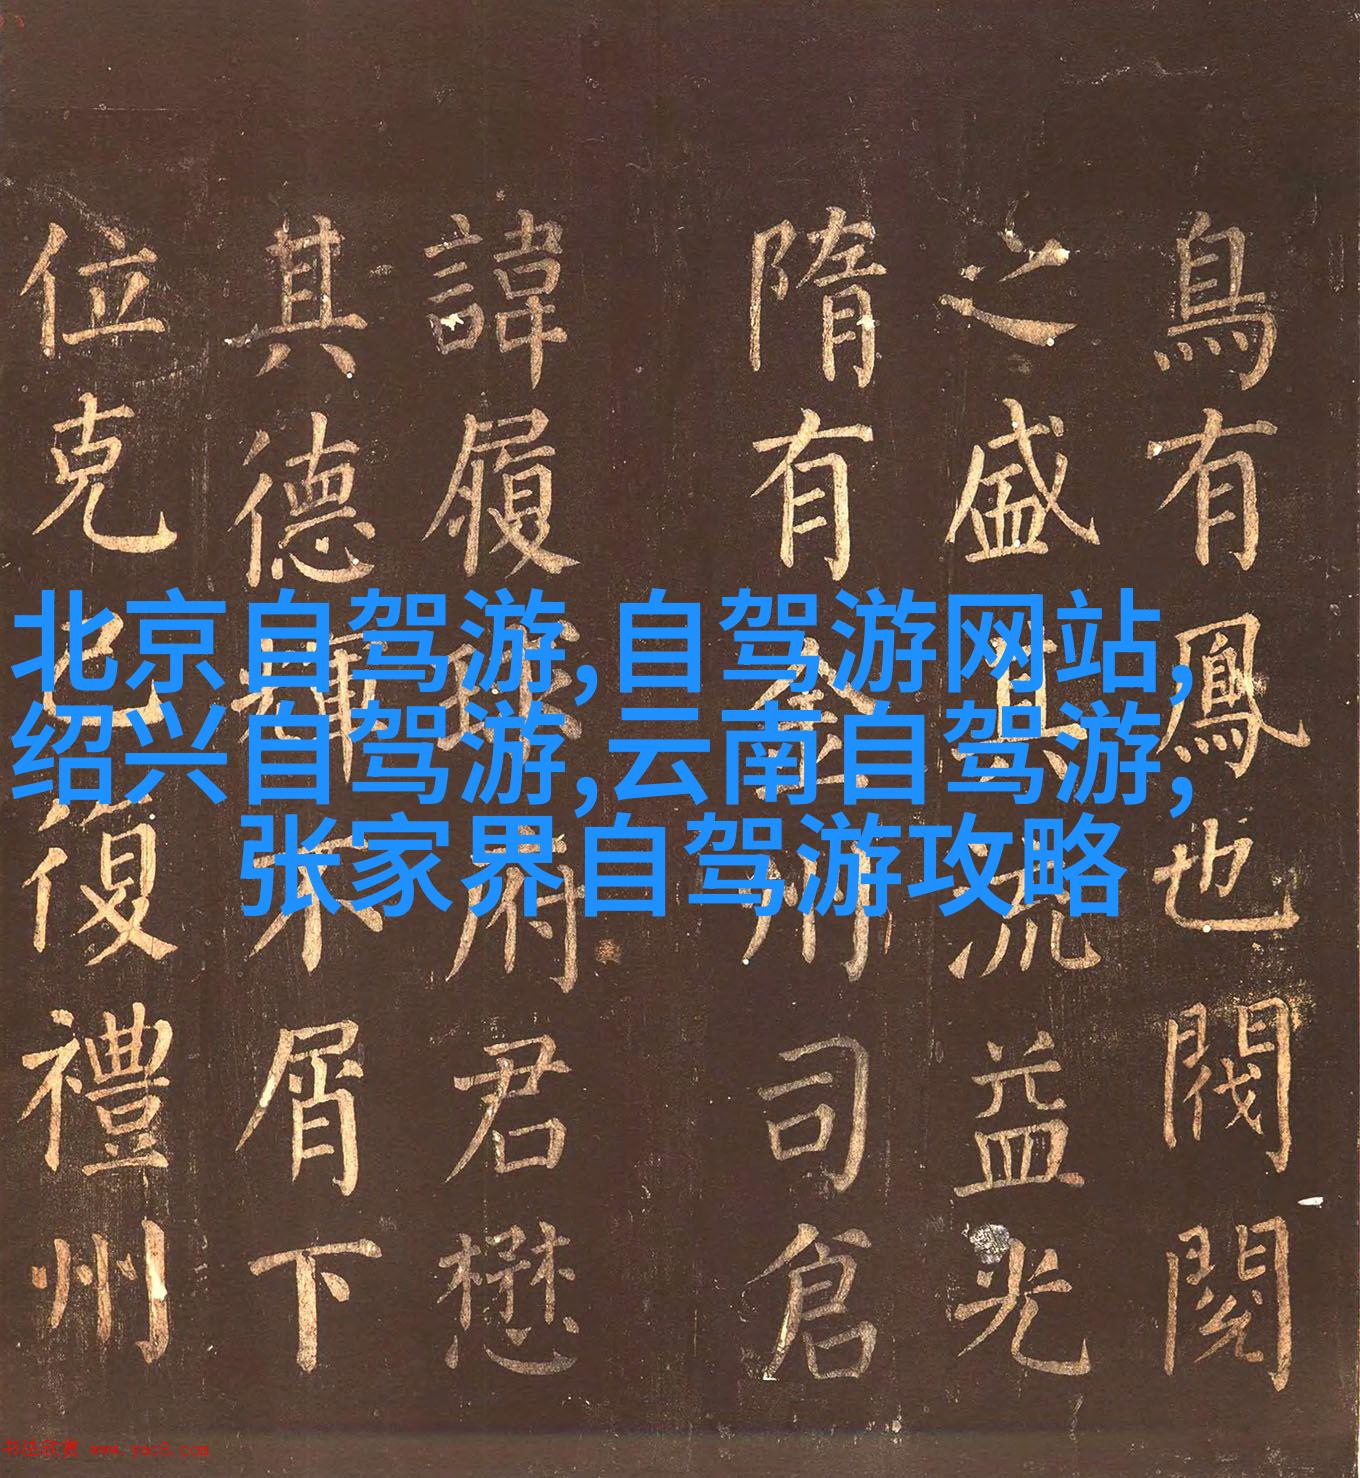 鳥有鳳也閥閱
之盛其流益光
隋有金州司倉
諱履府君懋
其德輝不屑下
位克己復禮州
北京自驾游,自驾游网站,
绍兴自驾游,云南自驾游,
张家界自驾游攻略
书法欣赏 www.yac8.com